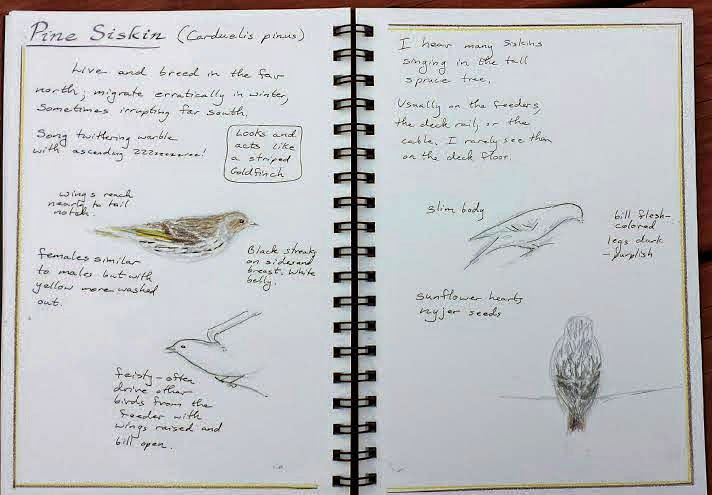 Pine Siskin (Carduelis pinus)
Live and breed in the far
north; migrate erratically in winter,
sometimes irrupting far south.
Song twittering warble
with ascending zzzzzzzzzz!
Looks and
acts like
a striped
Goldfinch
wings reach
nearly to tail
notch.
females similar
to males but with
yellow more washed
out.
Black streaks
on sides and
breast. White
belly.
feisty - often
drive other
birds from the
feeder with
wings raised and
bill open.
I hear many siskins
singing in the tall
spruce tree.
Usually on the feeders,
the deck rail, or the
cable. I rarely see them
on the deck floor.
slim body
bill flesh-
colored
legs dark
-purplish
sunflower hearts
nyjer seeds